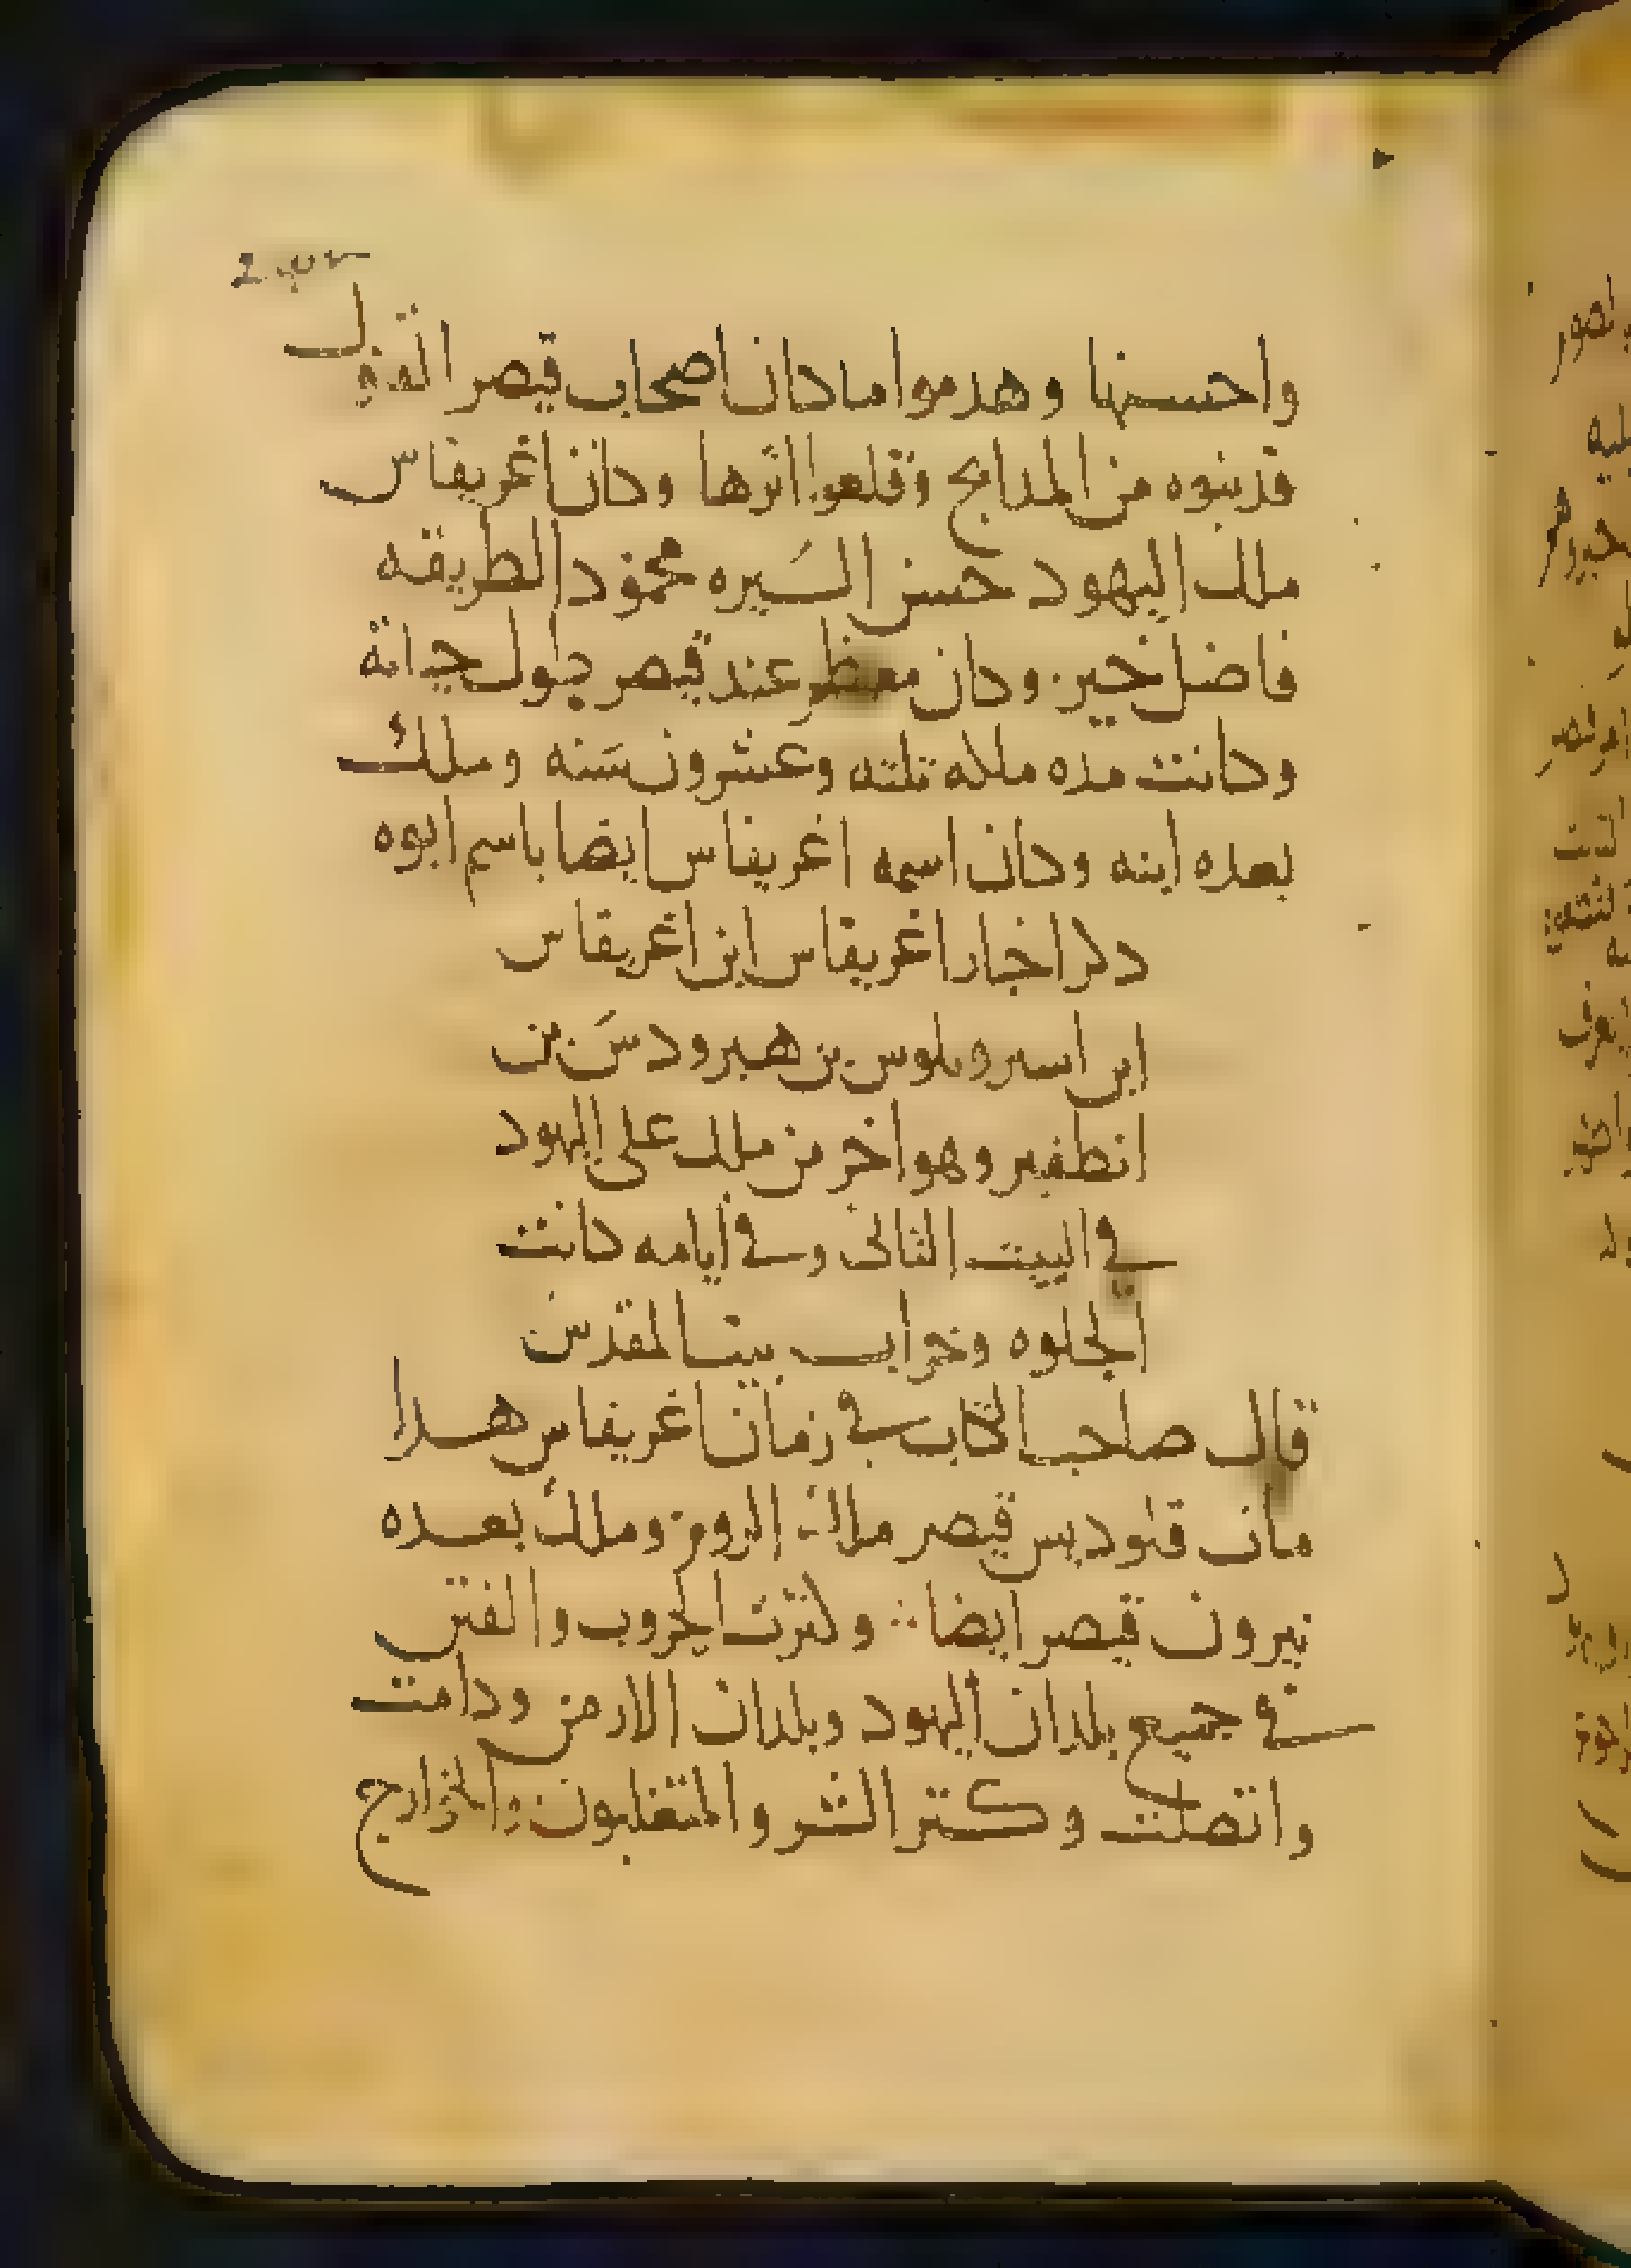 واحسنها وهدموا ما كان اصحاب قيصر الفول
قد بنوه من المدابح وقلعوا اثرها وكان اغريفاس
ملك اليهود حسن السيره محمود الطريقه
فاضل خير وكان معظم عند قيصر طول حياته
وكانت مده ملكه تلته وعشرون سنه وملك
بعده ابنه وكان اسمه اغريفاس ايضا باسم ابوه
دكر اخبار اغريقاس ابن اغريقاس
ابن بن هيرودس بن
انطفير وهو اخر من ملك على اليهود
في البيت الثاني وفي ايامه كانت
الجلوه وخراب بيت المقدس
قال صاحب الكتاب في زمان اغريفاس هدا
مات قلوديس قيصر ملك الروم وملك بعده
نيرون قيصر ايضا وكثرت الحروب والفتن
في جميع بلدان اليهود وبلدان الارمن ودامت
واتصلت وكتر الشر والمتغلبون والخوارج